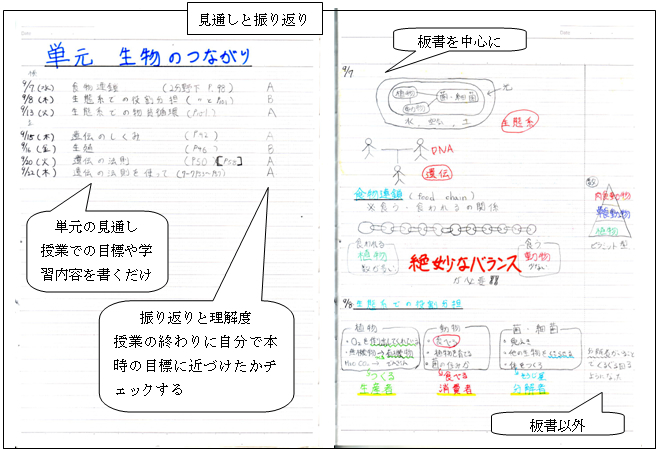 見通しと振り返り
単元 生物のつながり
4/7(水) 食物連鎖 (2分野下 P.98) A
4/8(木) 生態系での役割分担 B
4/13(火) 生態系での物質循環 A
4/15(木) 遺伝のしくみ (P42) A
4/16(金) 生殖 (P46) B
4/20(火) 遺伝の法則 (P50) A
4/22(木) 遺伝の法則を使って A
単元の見通し
授業での目標や学
習内容を書くだけ
振り返りと理解度
授業の終わりに自分で本
時の目標に近づけたかチ
ェックする
板書を中心に
4/7
植物
菌・細菌
動物
光
水 空気 土
生態系
DNA
遺伝
食物連鎖 (food chain)
※食う・食われるの関係
食われる
植物
数が多い
絶妙なバランス
が必要!!
食う
動物
少ない
数
肉食動物
草食動物
植物
ピラミッド型
4/8 生態系での役割分担
植物
動物
・食べる
・植物を育てる
菌・細菌
つくる
生産者
食べる
消費者
分解者
板書以外